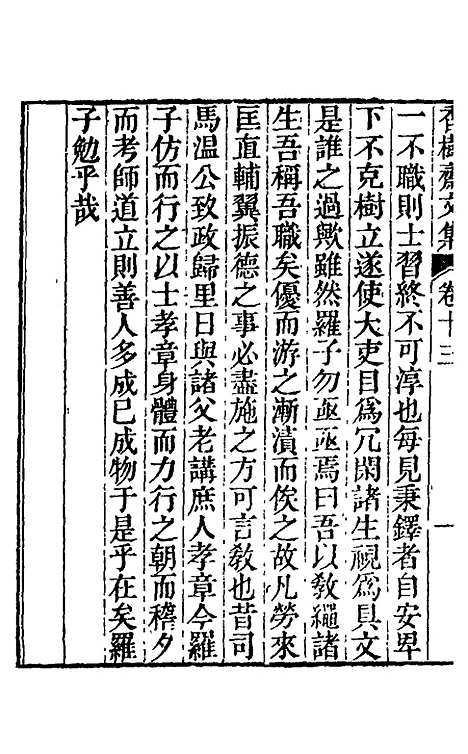 香樹齋文集 卷十三 一
一不職則士習終不可淳也每見秉鐸者自安卑
下不克樹立遂使大吏目爲冗閑諸生視爲具文
是誰之過歟雖然羅子勿亟亟焉曰吾以敎繩諸
生吾稱吾職矣優而游之漸漬而俟之故凡勞來
匡直輔翼振德之事必盡施之方可言敎也昔司
馬温公致政歸里日與諸父老講庶人孝章今羅
子仿而行之以士孝章身體而力行之朝而稽夕
而考師道立則善人多成已成物于是乎在矣羅
子勉乎哉